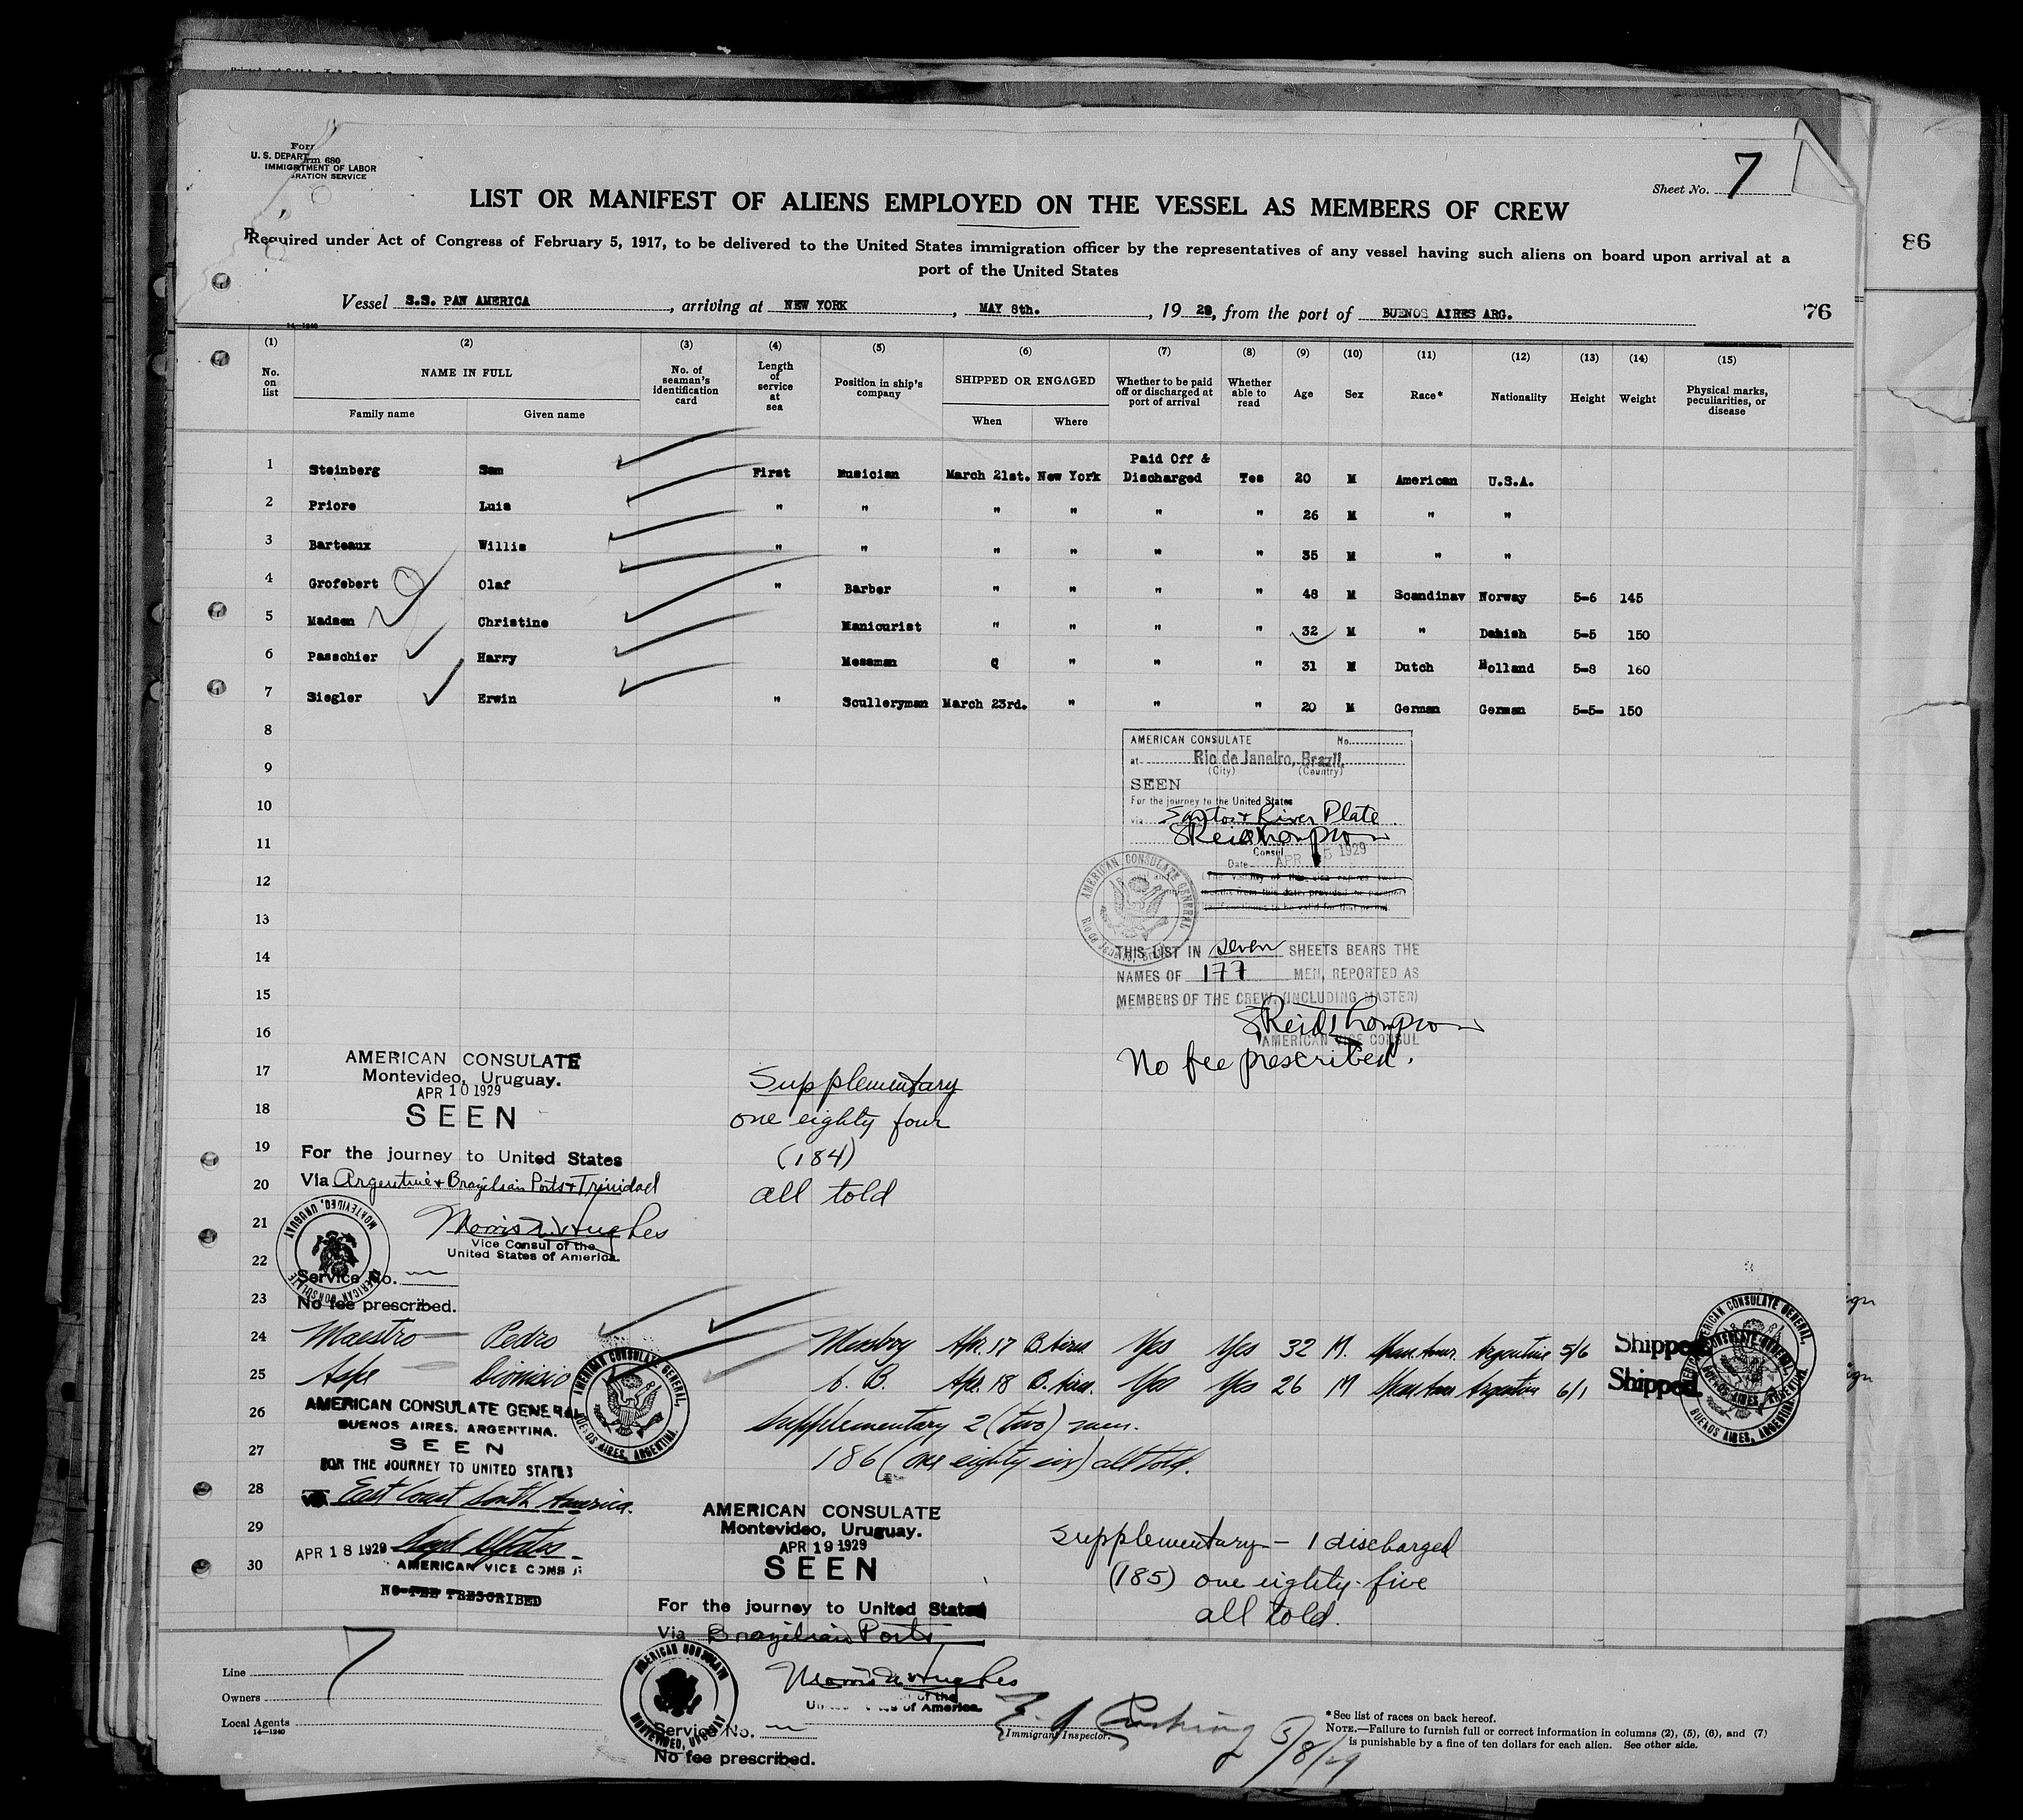 Form 680
U. S. DEPARTMENT OF LABOR
IMMIGRATION SERVICE
Sheet No. 7
LIST OR MANIFEST OF ALIENS EMPLOYED ON THE VESSEL AS MEMBERS OF CREW
Required under Act of Congress of February 5, 1917, to be delivered to the United States immigration officer by the representatives of any vessel having such aliens on board upon arrival at a
port of the United States
86
Vessel S.S. PAN AMERICA, arriving at NEW YORK, MAY 8th., 19 29, from the port of BUENOS AIRES ARG.
76
14-1240
(1) (2) (3) (4) (5) (6) (7) (8) (9) (10) (11) (12) (13) (14) (15)
No. on list NAME IN FULL Family name Given name No. of seaman's identification card Length of service at sea Position in ship's company SHIPPED OR ENGAGED When Where Whether to be paid off or discharged at port of arrival Whether able to read Age Sex Race* Nationality Height Weight Physical marks, peculiarities, or disease
1 Steinberg Sam First Musician March 21st. New York Paid Off & Discharged Yes 20 M American U.S.A.
2 Priore Luis " " " " " " 26 M " "
3 Barteaux Willis " " " " " " 35 M " "
4 Grofebert Olaf " Barber " " " " 48 M Scandinav Norway 5-6 145
5 Madsen Christine Manicurist " " " " 32 M " Danish 5-5 150
6 Passchier Harry Messman " " " 31 M Dutch Holland 5-8 160
7 Siegler Erwin " Sculleryman March 23rd. " " " 20 M German German 5-5- 150
8
9
10
11
12
13
14
15
16
17
18
19
20
21
22
23
AMERICAN CONSULATE No.
at Rio de Janeiro, Brazil.
(City) (Country)
SEEN
For the journey to the United States
via Santos & River Plate
Consul
Date APR 1929
AMERICAN CONSULATE GENERAL
Rio de Janeiro, Brazil
THIS LIST IN seven SHEETS BEARS THE
NAMES OF 177 MEN, REPORTED AS
MEMBERS OF THE CREW. (INCLUDING MASTER)
AMERICAN VICE CONSUL
No fee prescribed.
AMERICAN CONSULATE
Montevideo, Uruguay.
APR 10 1929
SEEN
For the journey to United States
Via Argentine & Brazilian Ports & Trinidad
Morris N. Hughes
Vice Consul of the
United States of America.
AMERICAN CONSULATE
MONTEVIDEO, URUGUAY
Service No.
No fee prescribed.
Supplementary
one eighty four
(184)
all told
24 Maestro Pedro Messboy Apr. 17 B. Aires Yes Yes 32 M. Span. Amer. Argentine 5/6 Shipped.
25 Aspe Dionicio Apr. 18 B. Aires. Yes Yes 26 M Span Am Argentine 6/1 Shipped.
AMERICAN CONSULATE GENERAL,
BUENOS AIRES, ARGENTINA.
26
27
28
29
30
AMERICAN CONSULATE GENERAL
BUENOS AIRES, ARGENTINA.
SEEN
FOR THE JOURNEY TO UNITED STATES
VIA East Coast South America.
APR 18 1929
AMERICAN VICE CONSUL
NO FEE PRESCRIBED
Supplementary 2 (two) men.
186 (one eighty six) all told.
AMERICAN CONSULATE
Montevideo, Uruguay.
APR 19 1929
SEEN
For the journey to United States
Via Brazilian Ports
Morris N. Hughes
of the
United States of America.
AMERICAN CONSULATE
MONTEVIDEO, URUGUAY
Service No.
No fee prescribed.
Supplementary - 1 discharged
(185) one eighty-five
all told.
Line
7
Owners
Local Agents
14-1240
Immigrant Inspector.
5/8/29
*See list of races on back hereof.
NOTE.—Failure to furnish full or correct information in columns (2), (5), (6), and (7)
is punishable by a fine of ten dollars for each alien. See other side.